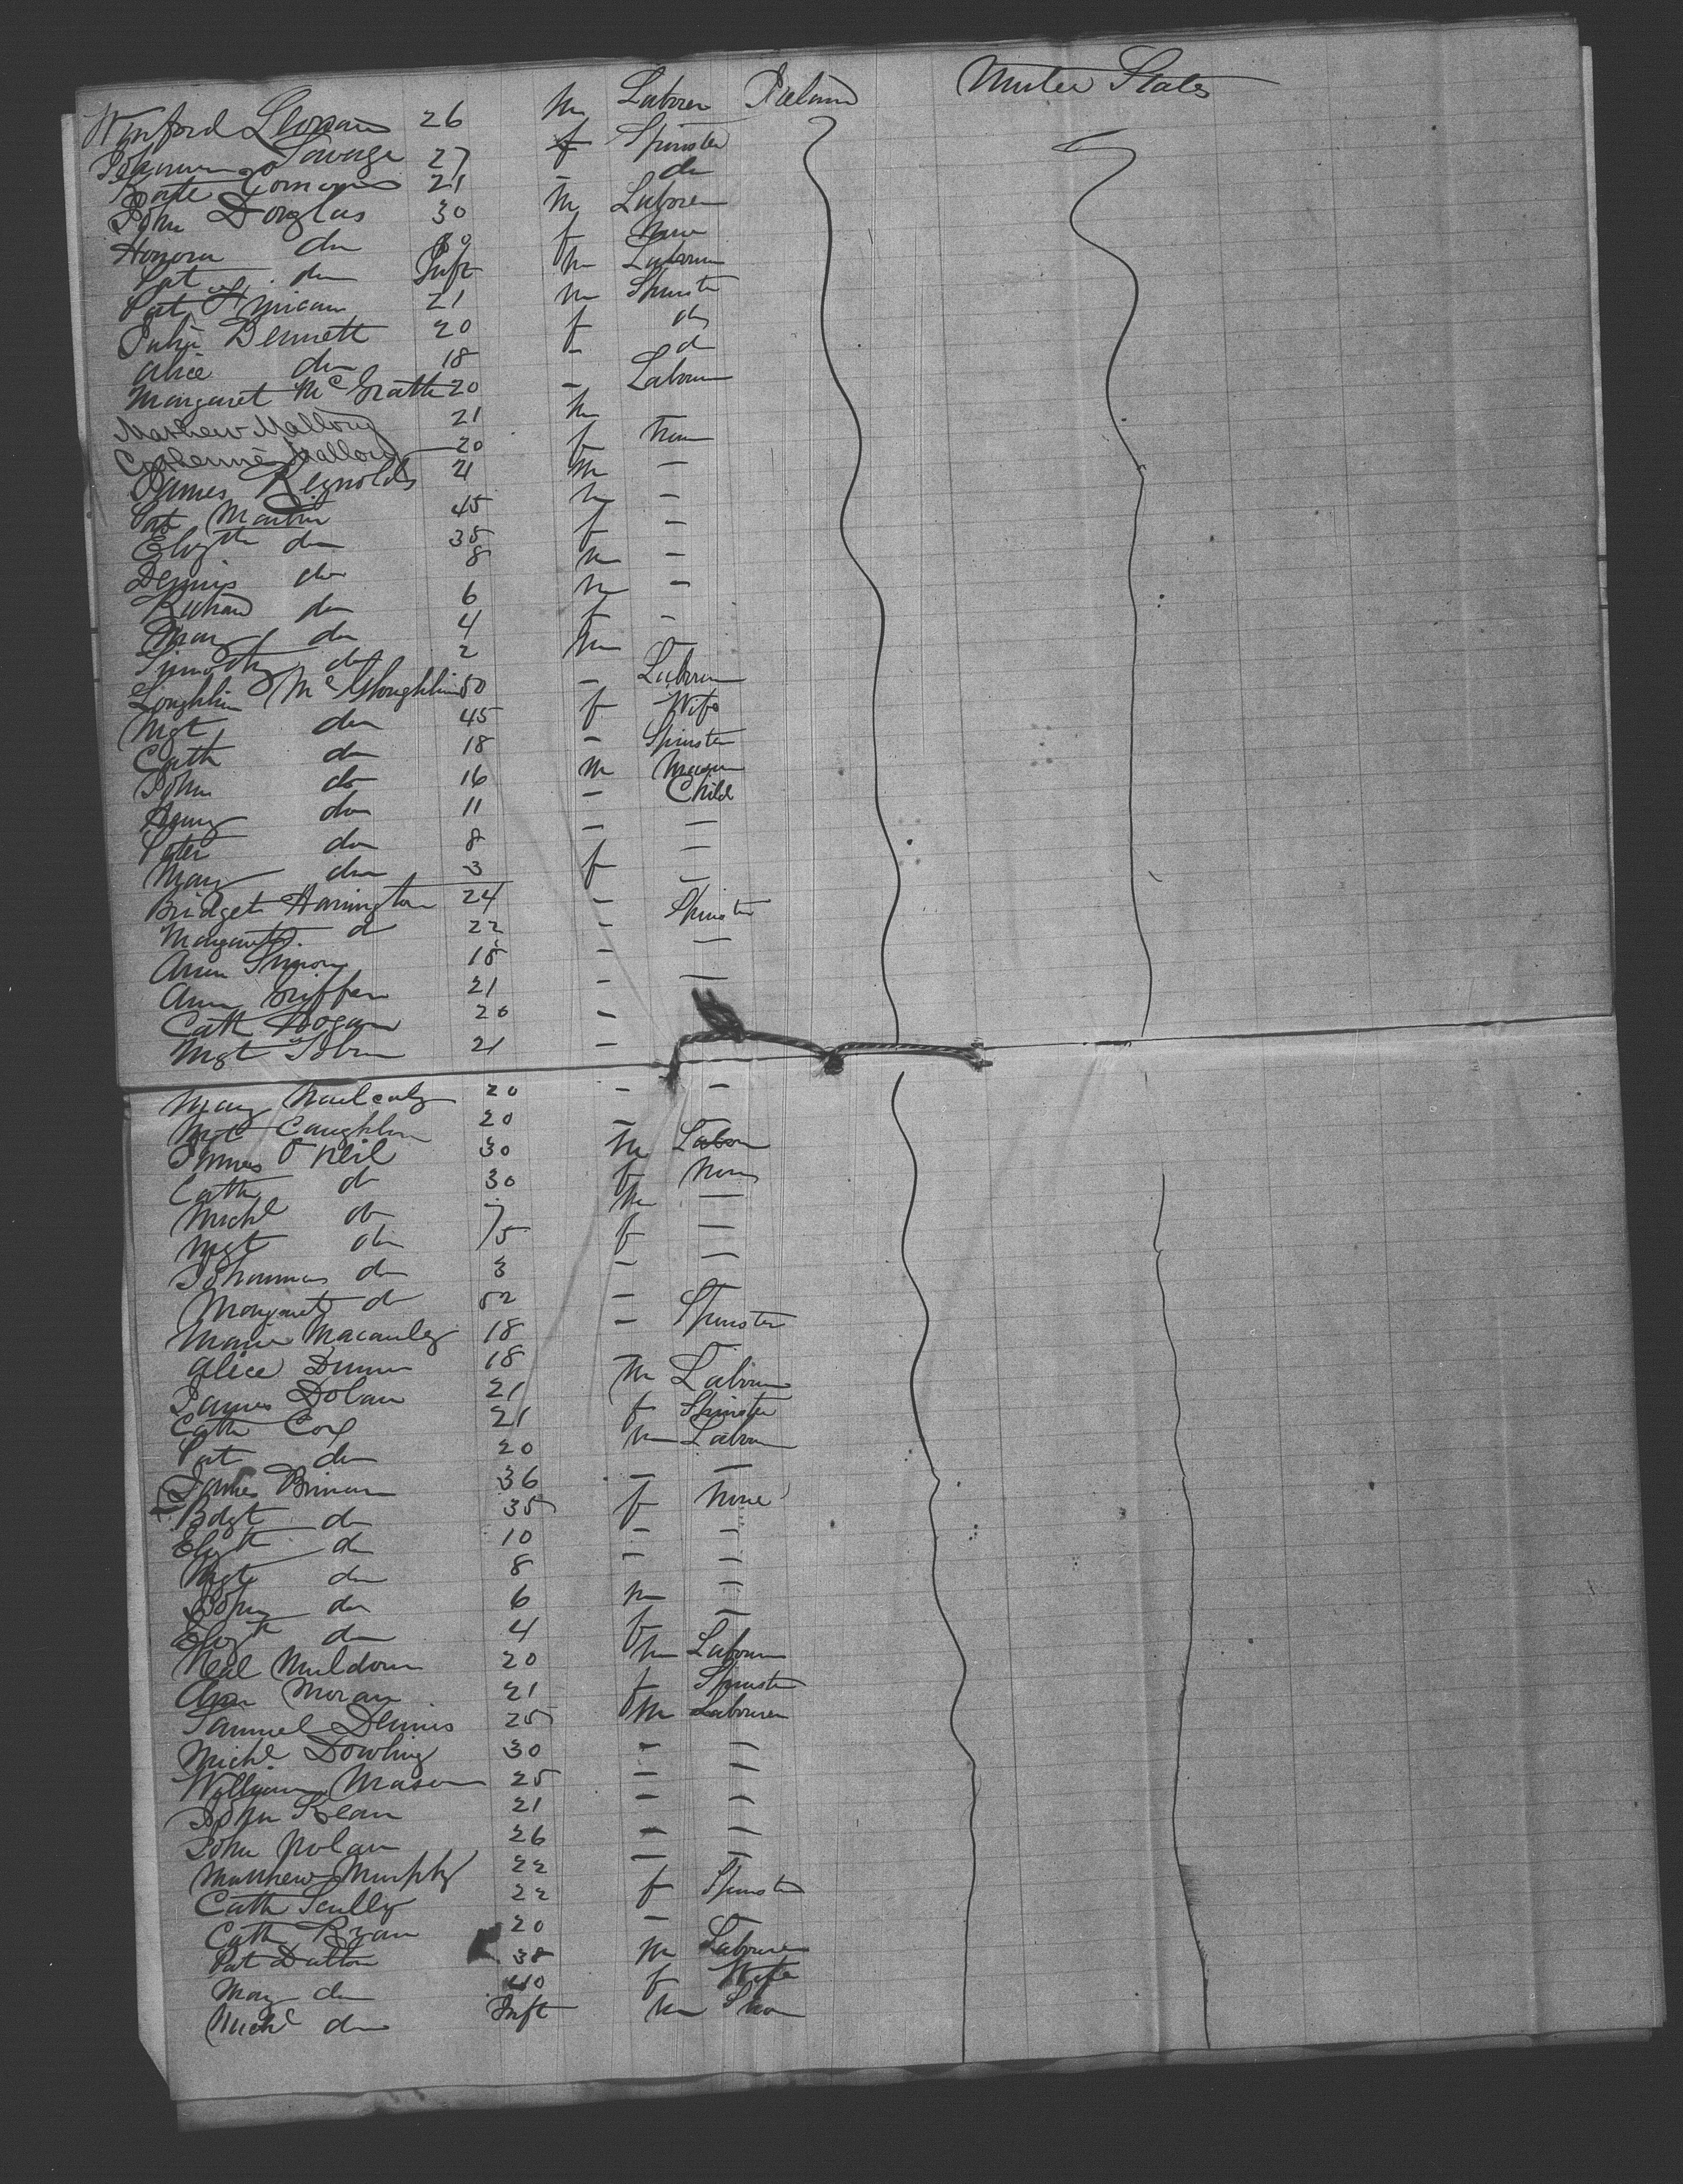 Winford 26 m Labourer Ireland United States
Johanna Savage 27 f Spinster
Kate 21 do
John Douglas 30 m Labourer
Honora do 30 f None
Pat do Inft m Labourer
Pat 21 m Spinster
Julia Dennett 20 f do
Alice do 18 - do
Margaret McGrath 20 - Labour
Mathew Mallory 21 m
Catherine Mallory 20 f None
James Reynolds 21 m -
Pat Martin 45 m -
Elizth do 35 f -
Dennis do 8 m -
Richard do 6 m -
Mary do 4 f -
Timothy do 2 m
Loughlin McGloughlin 50 - Labour
Mgt do 45 f Wife
Cath do 18 - Spinster
John do 16 m Mason
Henry do 11 - Child
Peter do 8 - -
Mary do 3 f -
Bridget Harrington 24 - -
Margaret do 22 - Spinster
Ann 18 - -
Ann Griffen 21 - -
Cath Hogan 20 -
Mgt Tobin 21 -
Mary 20 - -
Mgt Caughlin 20 -
James O'Neil 30 m Labour
Cath do 30 f None
Michl do 7 m -
Mgt do 5 f -
Johanna do 3 - -
Margaret do 52 -
Maria Macauley 18 - Spinster
Alice Dunn 18
James Dolan 21 m Labour
Cath Cox 21 f Spinster
Pat do 20 m Labour
James Brinan 36 - -
Bdgt do 35 f None
Elizth do 10 - -
Mgt do 8 - -
John do 6 m -
Elizth do 4 f -
Neal Muldoon 20 m Labour
Ann Moran 21 f Spinster
Samuel Dennis 25 m Labourer
Michl Dowling 30 - -
William Mason 25 - -
John Kean 21 - -
John Nolan 26 - -
Matthew Murphy 22 - -
Cath Scully 22 f Spinster
Cath Ryan 20 -
Pat Dalton 38 m Labourer
Mary do 40 f Wife
Michl do Inft m Son